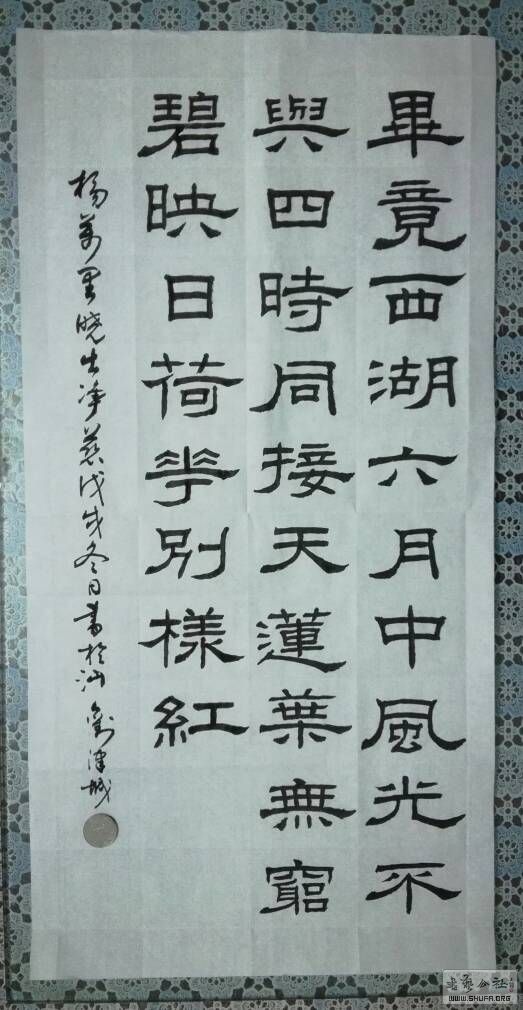 畢竟西湖六月中風光不
與四時同接天蓮葉無窮
碧映日荷花別樣紅
楊萬里曉出净慈戊戌冬日書於汕劉澤城
WWW.SHUFA.ORG